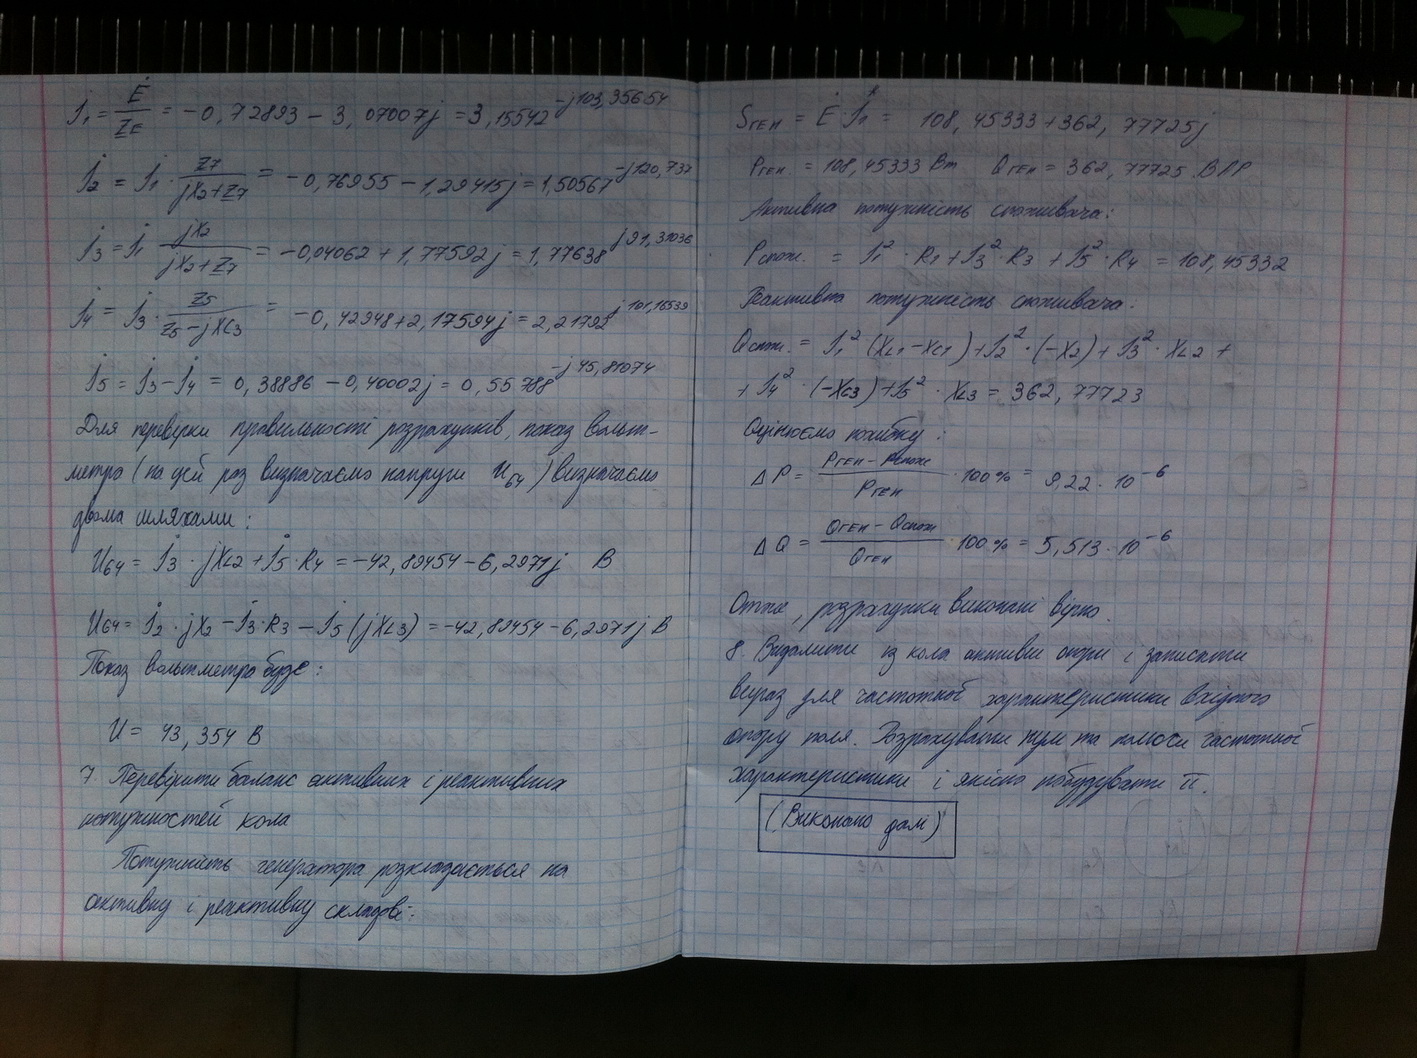 İ₁ = Ė/Z_E = -0,72893 - 3,07007j = 3,15542^-j103,35654
İ₂ = İ₁ · Z₇/(jX₂+Z₇) = -0,76955 - 1,29415j = 1,50567^-j120,737
İ₃ = İ₁ jX₂/(jX₂+Z₇) = -0,04062 + 1,77592j = 1,77638^j91,31036
İ₄ = İ₃ · Z₅/(Z₅-jXc₃) = -0,42948+2,17594j = 2,21792^j101,16539
İ₅ = İ₃ - İ₄ = 0,38886 - 0,40002j = 0,55788^-j45,81074
Для перевірки правильності розрахунків, показ вольт-
метра (на цей раз визначаємо напруги U₆₄) визначаємо
двома шляхами:
U₆₄ = İ₃ · jX_L2 + İ₅ · R₄ = -42,89454 - 6,2971j В
U₆₄ = İ₂ · jX₂ - İ₃ · R₃ - İ₅ (jX_L3) = -42,89454 - 6,2971j В
Показ вольтметра буде:
U = 43,354 В
7. Перевірити баланс активних і реактивних
потужностей кола
Потужність генератора розкладається на
активну і реактивну складові:
Sген = Ė · İ₁* = 108,45333+362,77725j
Pген. = 108,45333 Вт Qген = 362,77725 ВАР
Активна потужність споживача:
Pспож. = I₁² · R₁ + I₃² · R₃ + I₅² · R₄ = 108,45332
Реактивна потужність споживача:
Qспж. = I₁² (X_L1 - X_C1) + I₂² · (-X₂) + I₃² · X_L2 +
+ I₄² · (-X_C3) + I₅² · X_L3 = 362,77723
Оцінюємо похибку:
ΔP = (Pген - Pспож)/Pген · 100% = 9,22 · 10⁻⁶
ΔQ = (Qген - Qспож)/Qген · 100% = 5,513 · 10⁻⁶
Отже, розрахунки виконані вірно.
8. Видалити із кола активні опори і записати
вираз для частотної характеристики вхідного
опору кола. Розрахувати нулі та полюси частотної
характеристики і якісно побудувати її.
(Виконано далі)